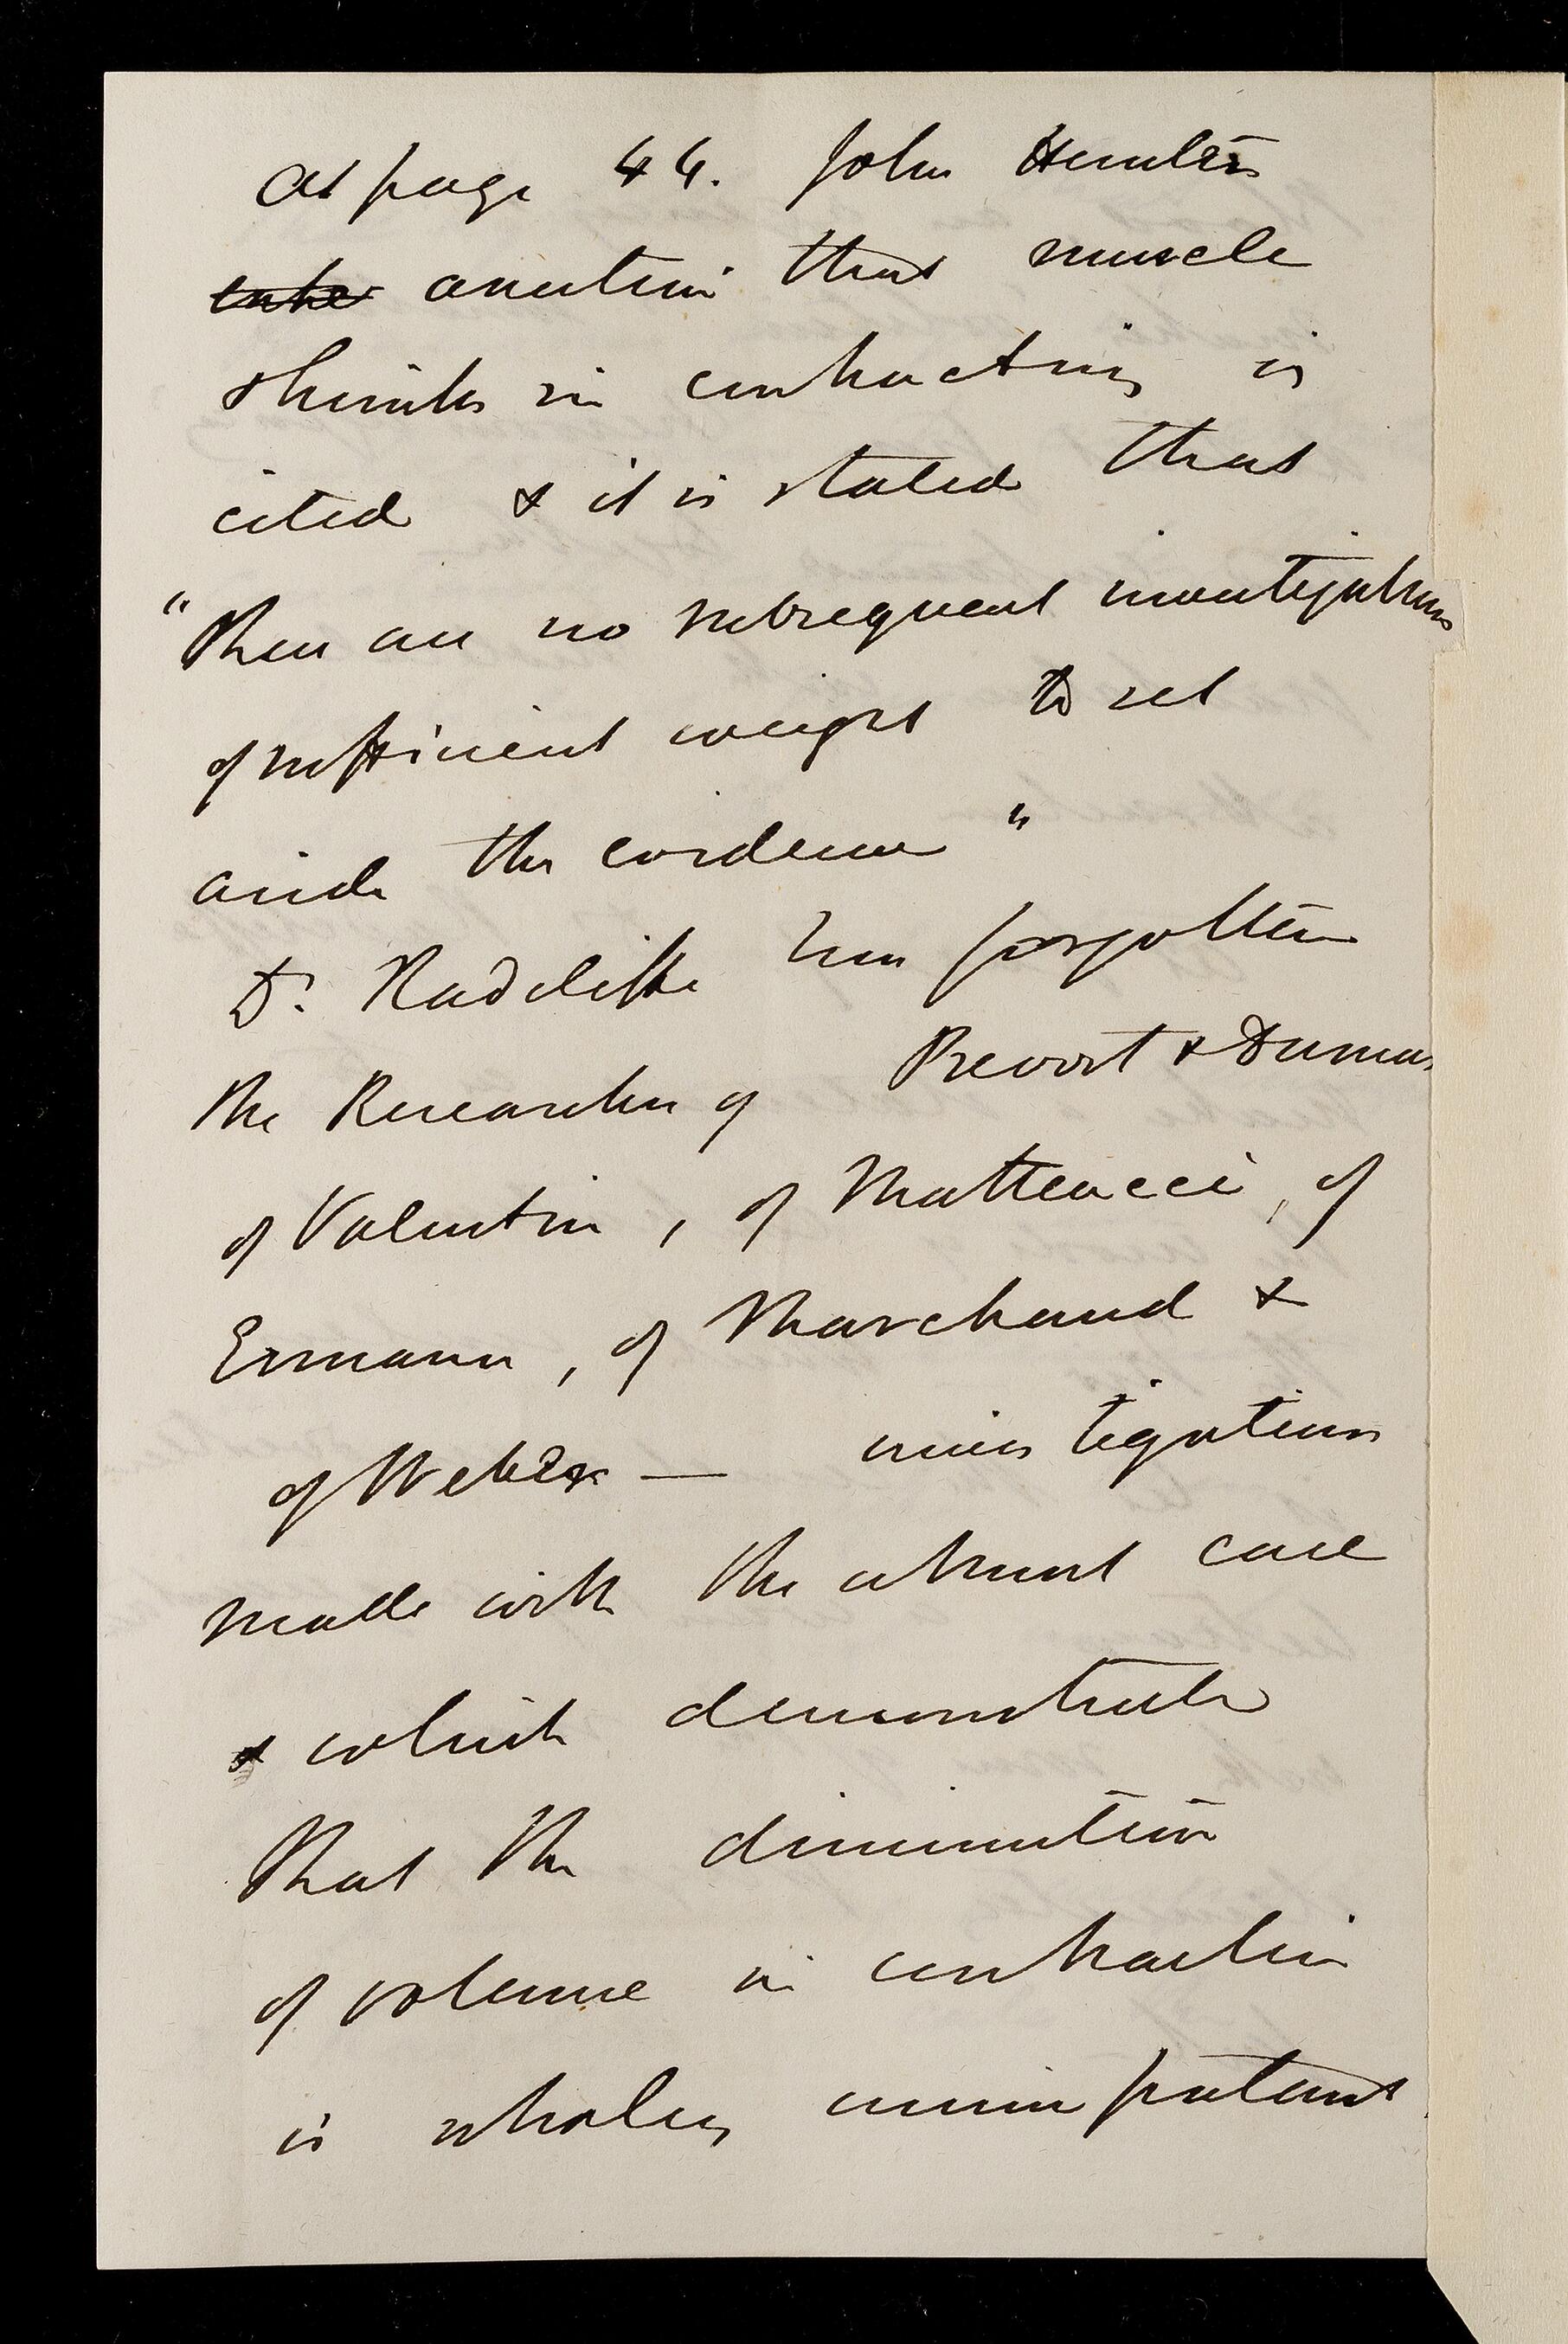 At page 44. John Hunter's
assertion that muscle
shrinks in contracting is
cited & it is stated that
"There are no subsequent investigations
of sufficient weight to set
aside this evidence"
Dr. Radcliffe has forgotten
the Researches of Prevost & Dumas
of Valentin, of Matteucci, of
Ermann, of Marchand &
of Weber — investigations
made with the utmost care
& which demonstrate
that the diminution
of volume in contraction
is wholly unimportant